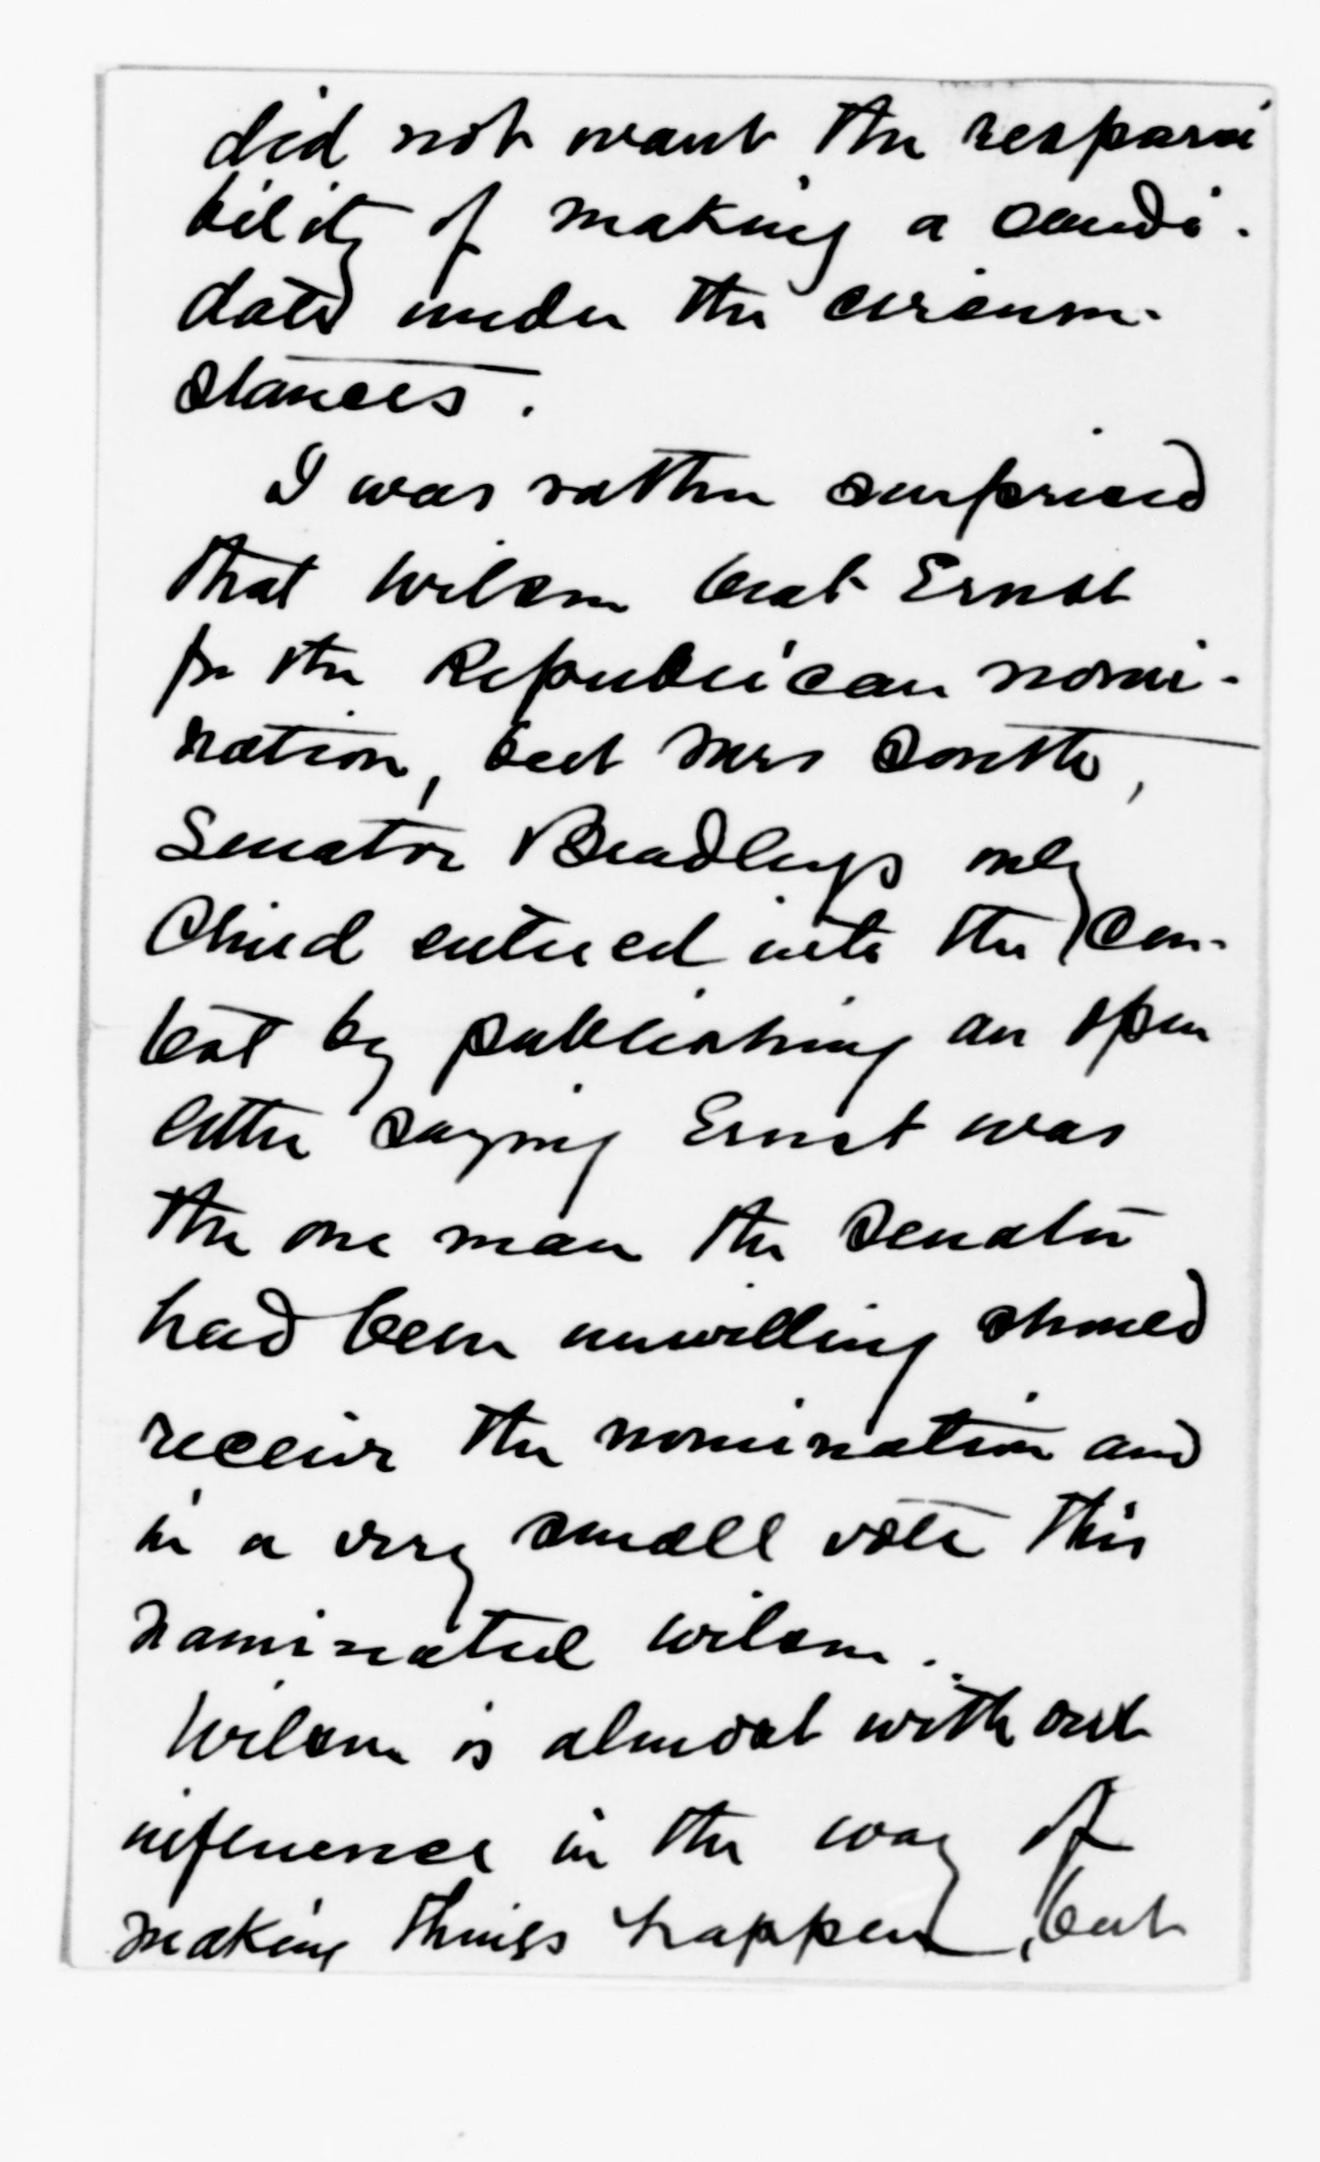 did not want the responsi
bility of making a candi-
date under the circum-
stances.
I was rather surprised
that Wilson beat Ernst
for the Republican nomi-
nation, but Mrs South,
Senator Bradleys only
Child entered into the Con-
test by publishing an open
letter saying Ernst was
the one man the Senator
had been unwilling should
receive the nomination and
in a very small vote this
nominated Wilson.
Wilson is almost without
influence in the way of
making things happen, but